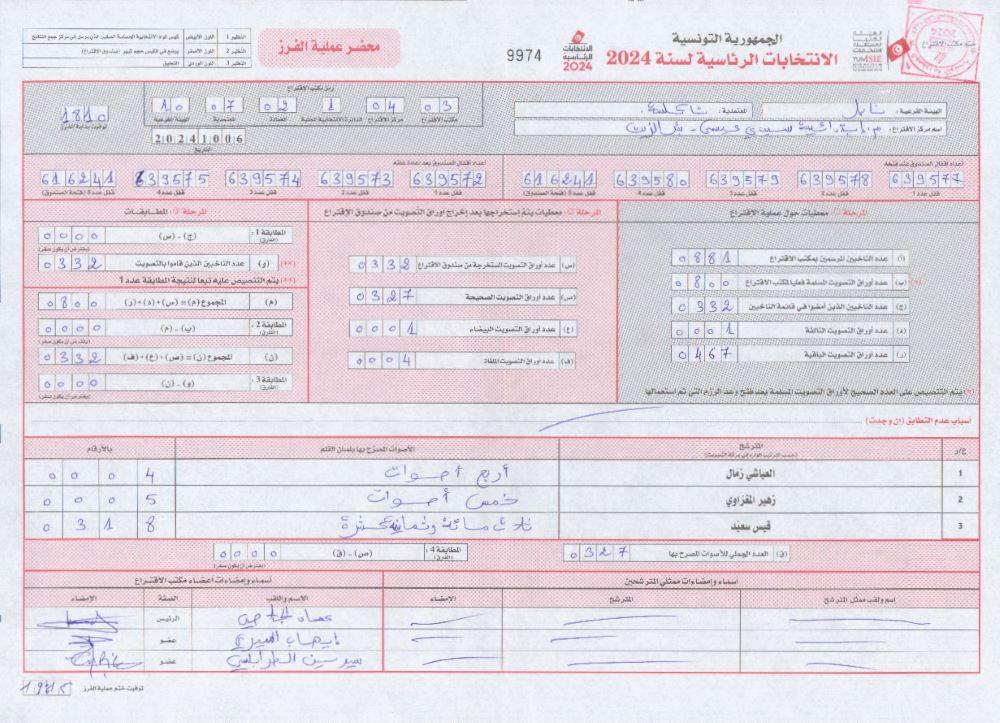 الجمهورية التونسية
الانتخابات الرئاسية لسنة 2024
الانتخابات الرئاسية 2024
9974
محضر عملية الفرز
النظير 1 اللون الأبيض
النظير 2 اللون الأصفر يوضع في الكيس حجم كبير (صندوق الاقتراع)
النظير 3 اللون الوردي التعليق
الهيئة الفرعية: نابل المعتمدية: تاكلسة
اسم مركز الاقتراع:
رمز مكتب الاقتراع
03 04 1 02 07 10
مكتب الاقتراع مركز الاقتراع الدائرة الانتخابية المحلية العمادة المعتمدية الهيئة الفرعية
20241006
التاريخ
1810
توقيت بداية الفرز
أعداد أقفال الصندوق عند فتحه
639577 639578 639579 639580 616241
قفل عدد 1 قفل عدد 2 قفل عدد 3 قفل عدد 4 قفل عدد 5 (فتحة الصندوق)
أعداد أقفال الصندوق بعد إعادة غلقه
639572 639573 639574 639575 616241
قفل عدد 1 قفل عدد 2 قفل عدد 3 قفل عدد 4 قفل عدد 5 (فتحة الصندوق)
معطيات حول عملية الاقتراع
(أ) عدد الناخبين المرسمين بمكتب الاقتراع 0881
(*) (ب) عدد أوراق التصويت المسلمة فعليا لمكتب الاقتراع 0800
(ج) عدد الناخبين الذين أمضوا في قائمة الناخبين 0332
(د) عدد أوراق التصويت التالفة 0001
(ر) عدد أوراق التصويت الباقية 0467
(*) يتم التنصيص على العدد الصحيح لأوراق التصويت المسلمة بعد فتح وعد الرزم التي تم استعمالها
معطيات يتم إستخراجها بعد إخراج أوراق التصويت من صندوق الإقتراع
(س) عدد أوراق التصويت المستخرجة من صندوق الاقتراع 0332
(ص) عدد أوراق التصويت الصحيحة 0327
(ع) عدد أوراق التصويت البيضاء 0001
(ف) عدد أوراق التصويت الملغاة 0004
المطابقات
المطابقة 1: (الفارق) (ج) - (س) 0000
(**) (و) عدد الناخبين الذين قاموا بالتصويت 0332
(**) يتم التنصيص عليه تبعا لنتيجة المطابقة عدد 1
(م) المجموع (م) = (س) + (د) + (ر) 0800
المطابقة 2: (الفارق) (ب) - (م) 0000
(ن) المجموع (ن) = (ص) + (ع) + (ف) 0332
المطابقة 3: (الفارق) (و) - (ن) 0000
أسباب عدم التطابق (إن وجدت)
ع/ر المترشح الأصوات المصرّح بها بلسان القلم بالأرقام
1 العياشي زمال أربع أصوات 0004
2 زهير المغزاوي خمس أصوات 0005
3 قيس سعيّد ثلاث مائة وثمانية عشرة 0318
(ق) العدد الجملي للأصوات المصرح بها 0327
المطابقة 4: (الفارق) (ص) - (ق) 0000
أسماء وإمضاءات ممثلي المترشحين
اسم ولقب ممثل المترشح المترشح الإمضاء
أسماء وإمضاءات أعضاء مكتب الاقتراع
الاسم واللقب الصفة الإمضاء
الرئيس
عضو
سيرين الطرابلسي عضو
توقيت ختم عملية الفرز 1915